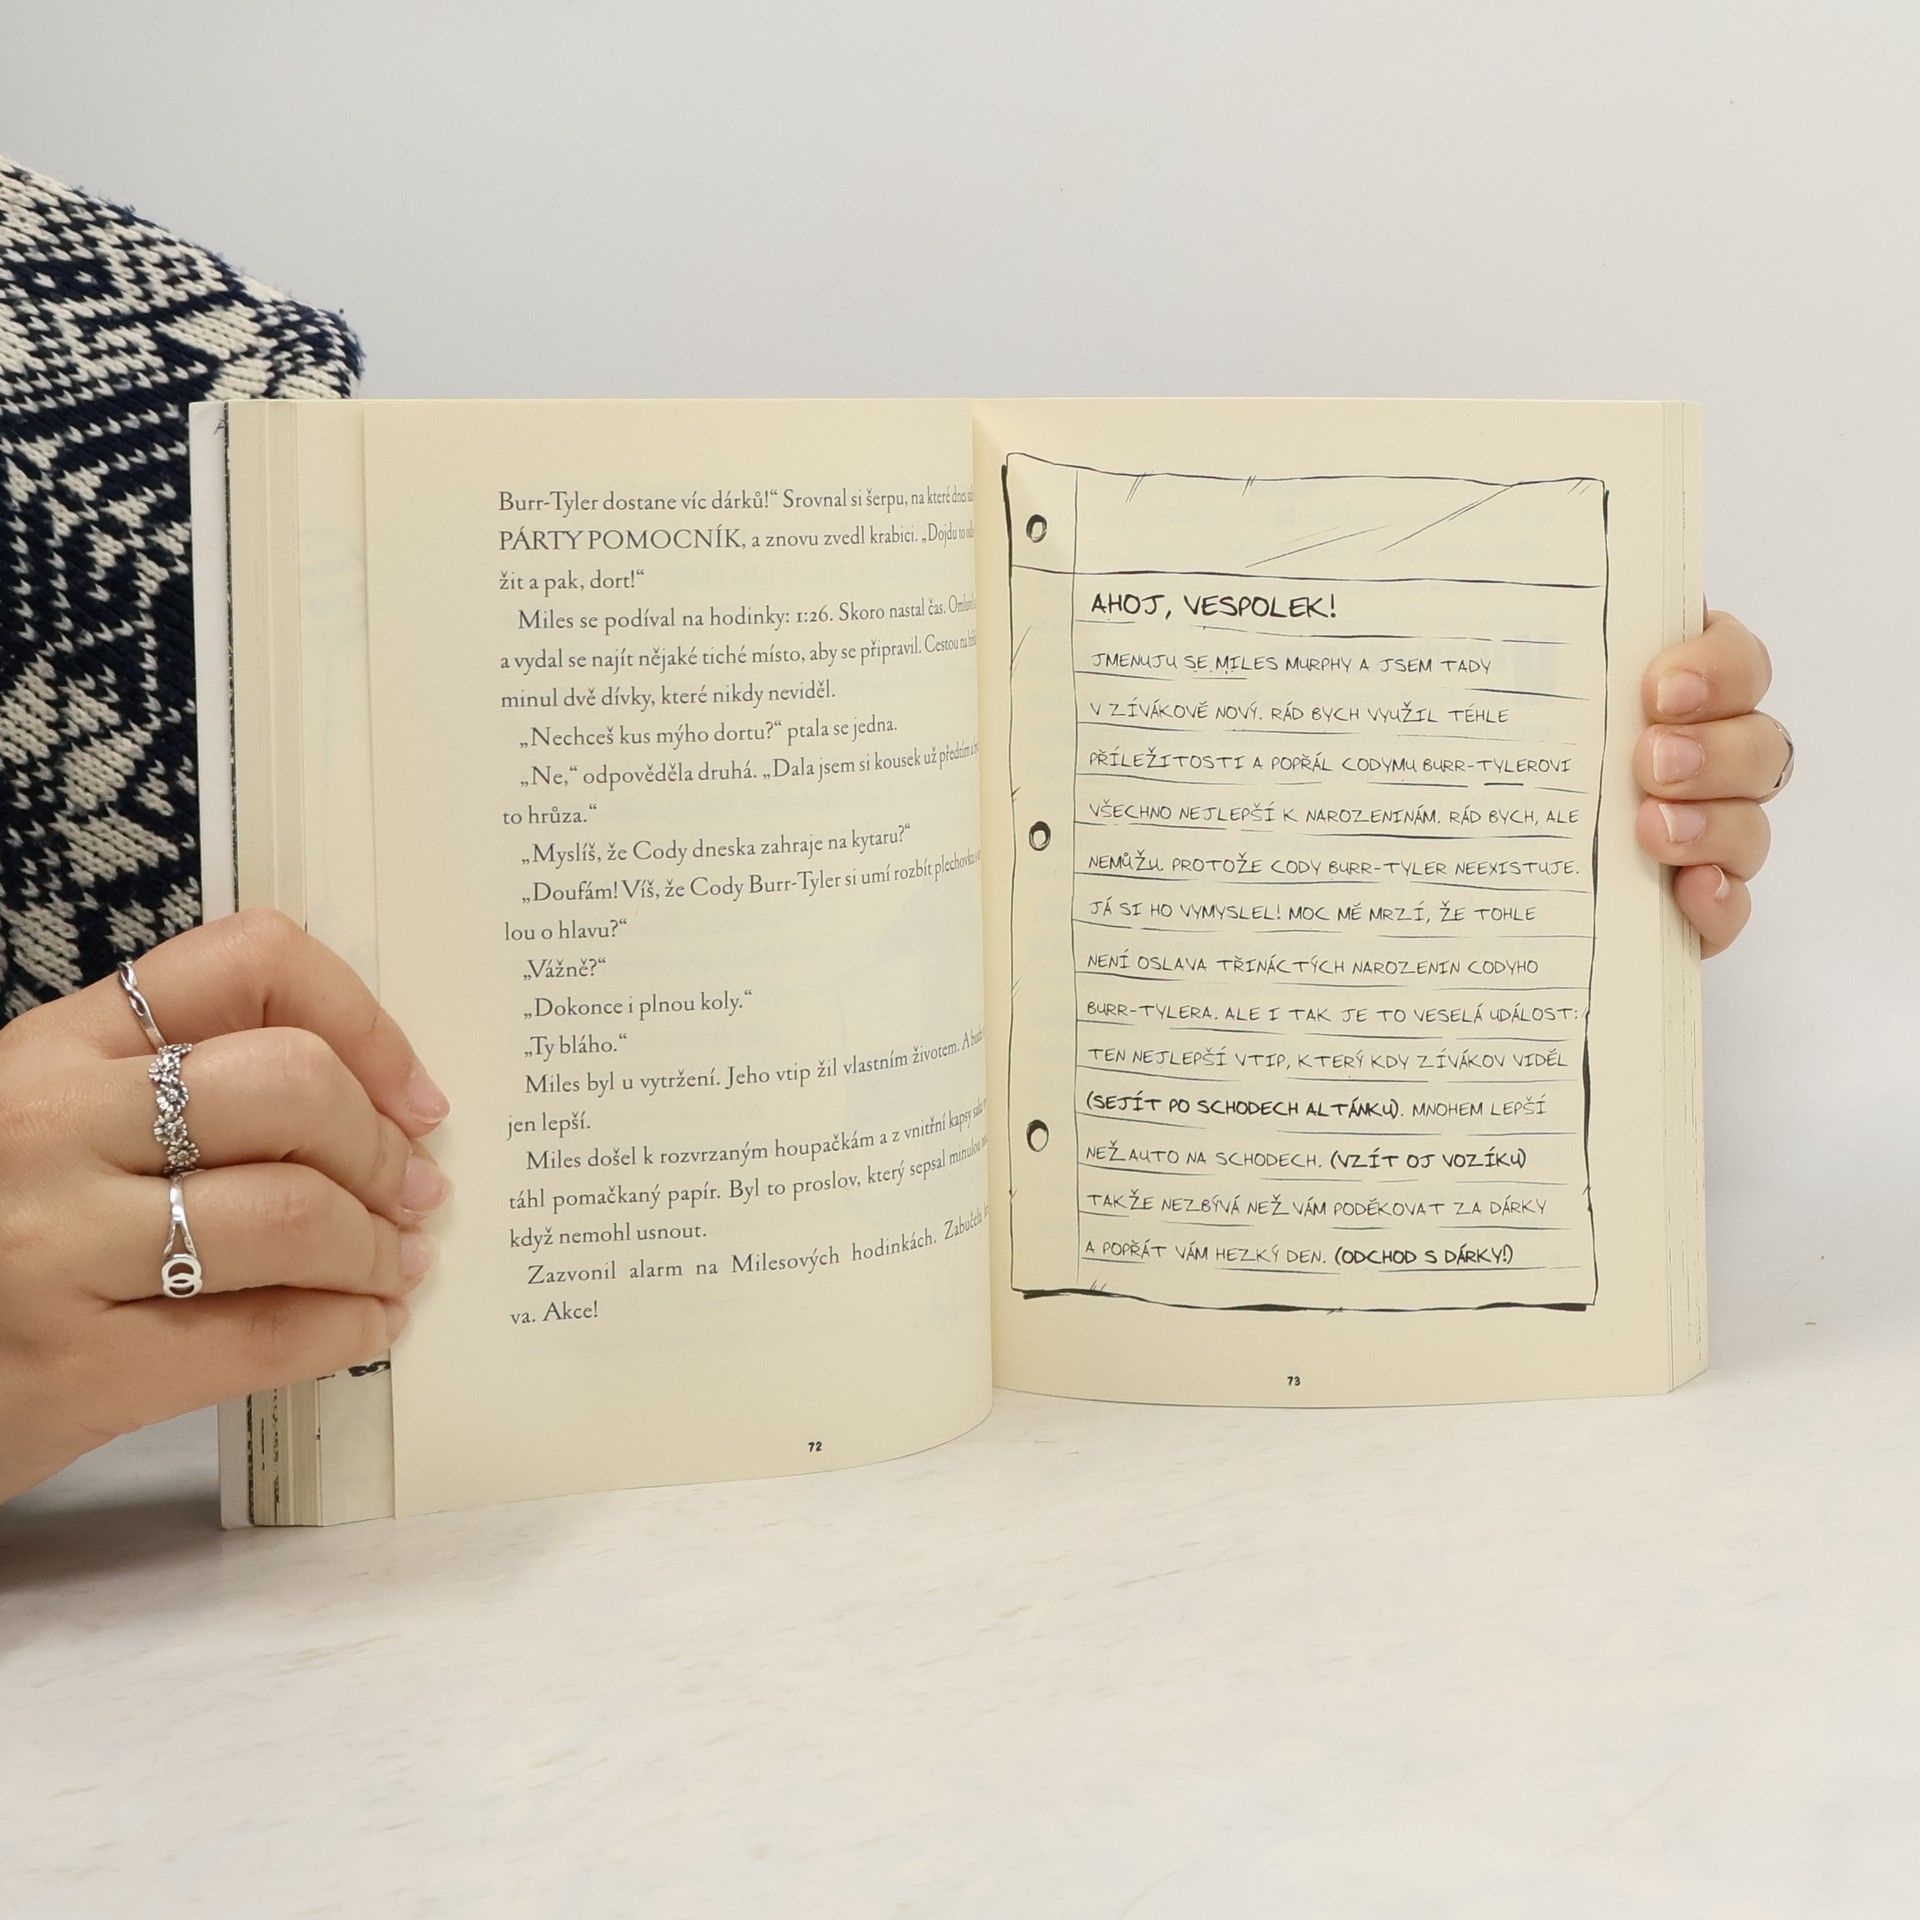 Burr-Tyler dostane víc dárků!“ Srovnal si šerpu, na které dnes
PÁRTY POMOCNÍK, a znovu zvedl krabici. „Dojdu to
žit a pak, dort!“
Miles se podíval na hodinky: 1:26. Skoro nastal čas.
a vydal se najít nějaké tiché místo, aby se připravil. Cestou na
minul dvě dívky, které nikdy neviděl.
„Nechceš kus mýho dortu?“ ptala se jedna.
„Ne,“ odpověděla druhá. „Dala jsem si kousek už předtím a
to hrůza.“
„Myslíš, že Cody dneska zahraje na kytaru?“
„Doufám! Víš, že Cody Burr-Tyler si umí rozbít plechovku
lou o hlavu?“
„Vážně?“
„Dokonce i plnou koly.“
„Ty bláho.“
Miles byl u vytržení. Jeho vtip žil vlastním životem. A
jen lepší.
Miles došel k rozvrzaným houpačkám a z vnitřní kapsy
táhl pomačkaný papír. Byl to proslov, který sepsal minulou
když nemohl usnout.
Zazvonil alarm na Milesových hodinkách. Zabučela
va. Akce!
72
AHOJ, VESPOLEK!
JMENUJU SE MILES MURPHY A JSEM TADY
V ZÍVÁKOVĚ NOVÝ. RÁD BYCH VYUŽIL TÉHLE
PŘÍLEŽITOSTI A POPŘÁL CODYMU BURR-TYLEROVI
VŠECHNO NEJLEPŠÍ K NAROZENINÁM. RÁD BYCH, ALE
NEMŮŽU. PROTOŽE CODY BURR-TYLER NEEXISTUJE.
JÁ SI HO VYMYSLEL! MOC MĚ MRZÍ, ŽE TOHLE
NENÍ OSLAVA TŘINÁCTÝCH NAROZENIN CODYHO
BURR-TYLERA. ALE I TAK JE TO VESELÁ UDÁLOST:
TEN NEJLEPŠÍ VTIP, KTERÝ KDY ZÍVÁKOV VIDĚL
(SEJÍT PO SCHODECH ALTÁNKU). MNOHEM LEPŠÍ
NEŽ AUTO NA SCHODECH. (VZÍT OJ VOZÍKU)
TAKŽE NEZBÝVÁ NEŽ VÁM PODĚKOVAT ZA DÁRKY
A POPŘÁT VÁM HEZKÝ DEN. (ODCHOD S DÁRKY!)
73